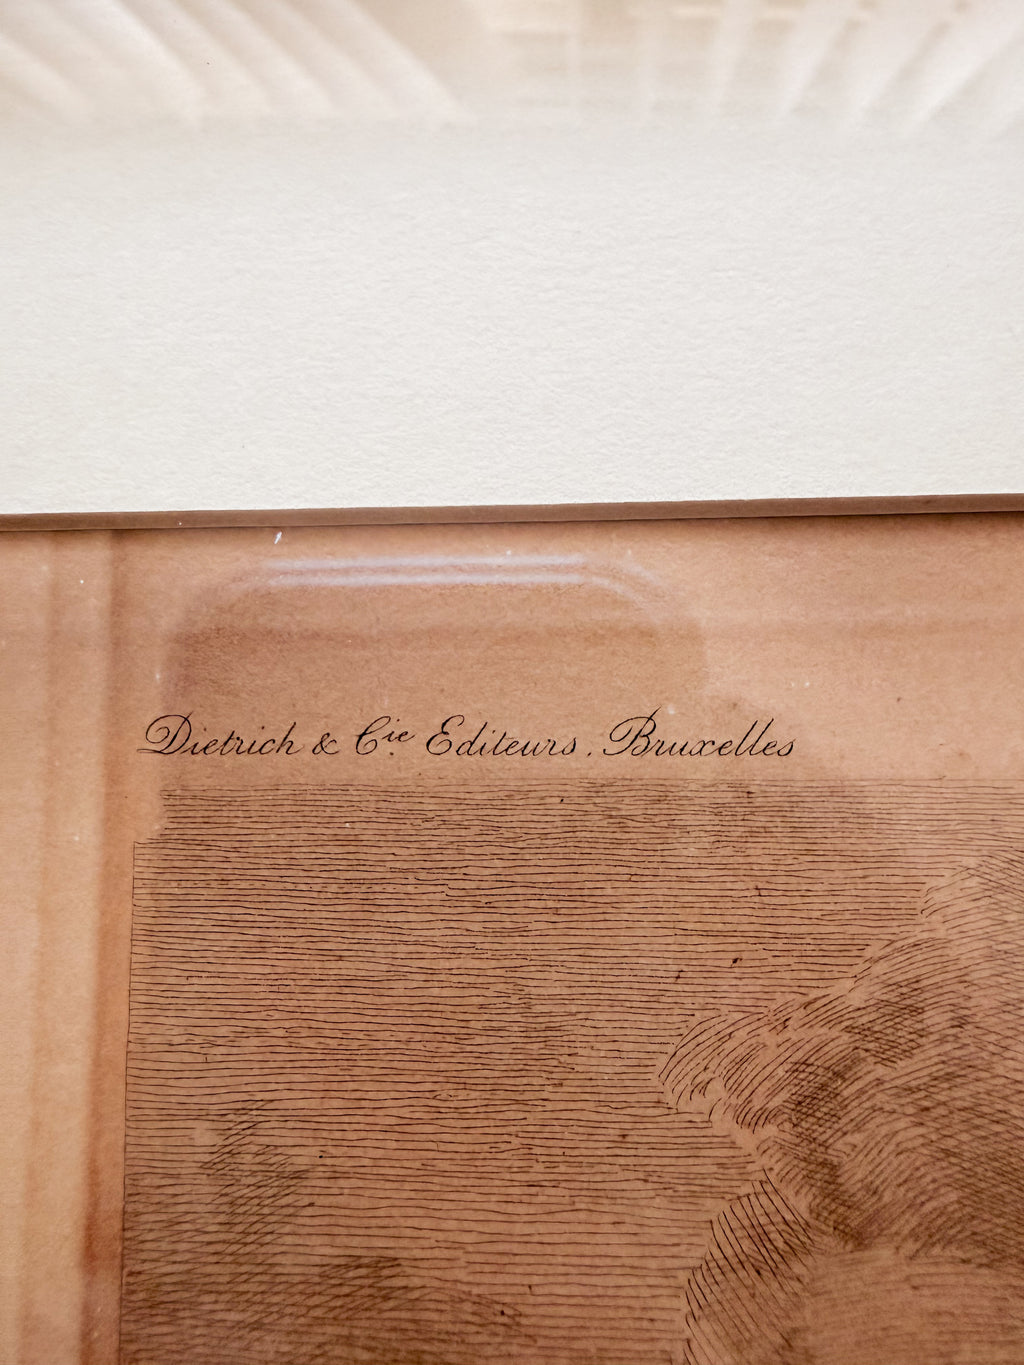 Dietrich & Cie Editeurs. Bruxelles